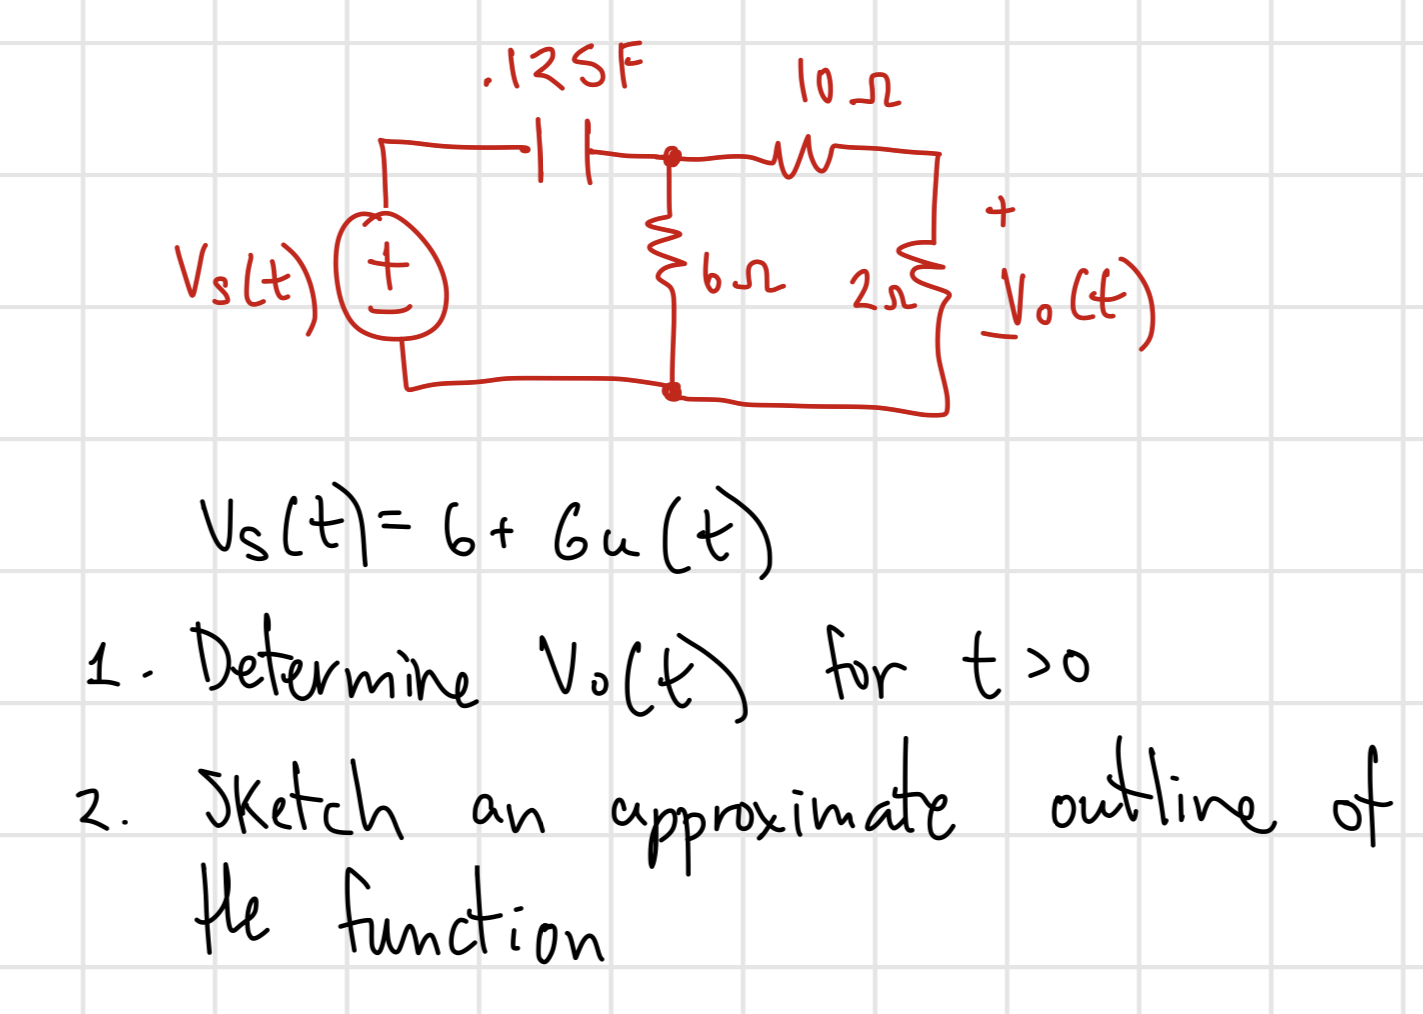 .125F
10Ω
Vs(t)
6Ω
2Ω
+
Vo(t)
−
Vs(t) = 6 + 6u(t)
1. Determine Vo(t) for t>0
2. Sketch an approximate outline of
the function